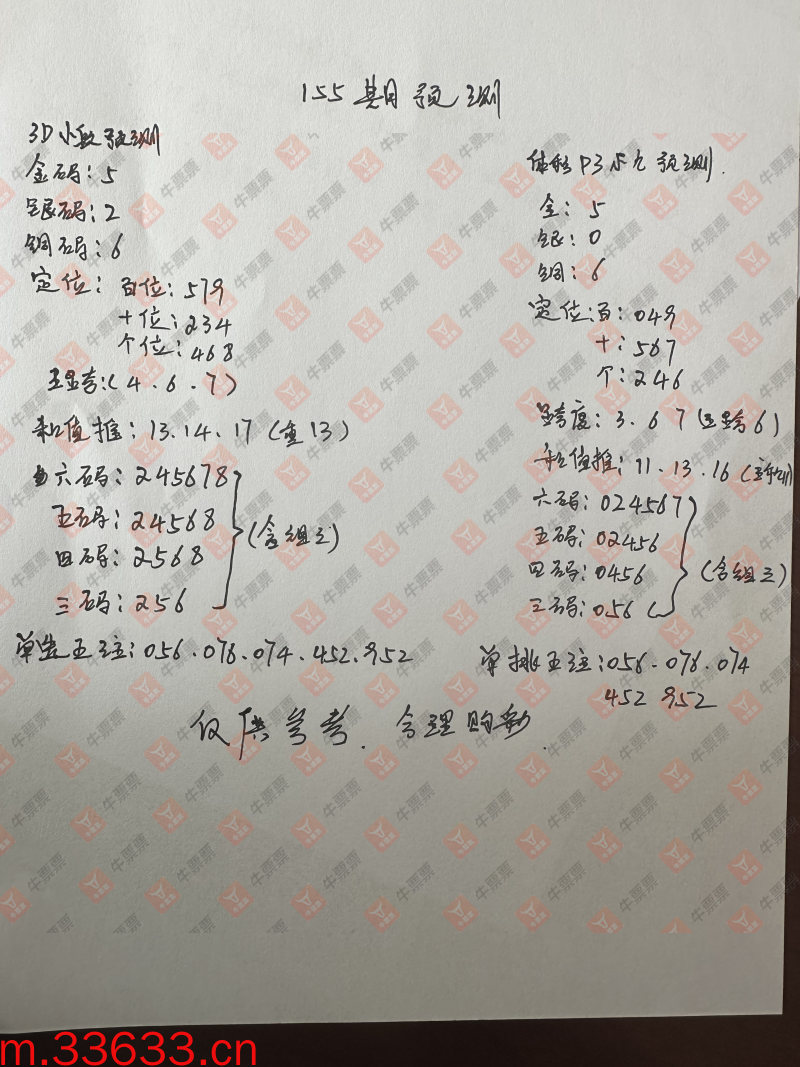 155期预测
3D小数预测
金码:5
银码:2
铜码:6
定位:百位:579
十位:234
个位:468
五显夸:(4.6.7)
和值推:13.14.17(重13)
六码:245678
五码:24568
四码:2568
三码:256
(含组三)
单选五注:056.078.074.452.952
体彩P3 预测
金:5
银:0
铜:6
定位:百:049
十:567
个:246
跨度:3.6 7
和值推:11.13.16
六码:024567
五码:02456
四码:0456
三码:056
(含组三)
单排五注:056.078.074
452 952
仅供参考.合理购彩.
牛票票
m.33633.cn